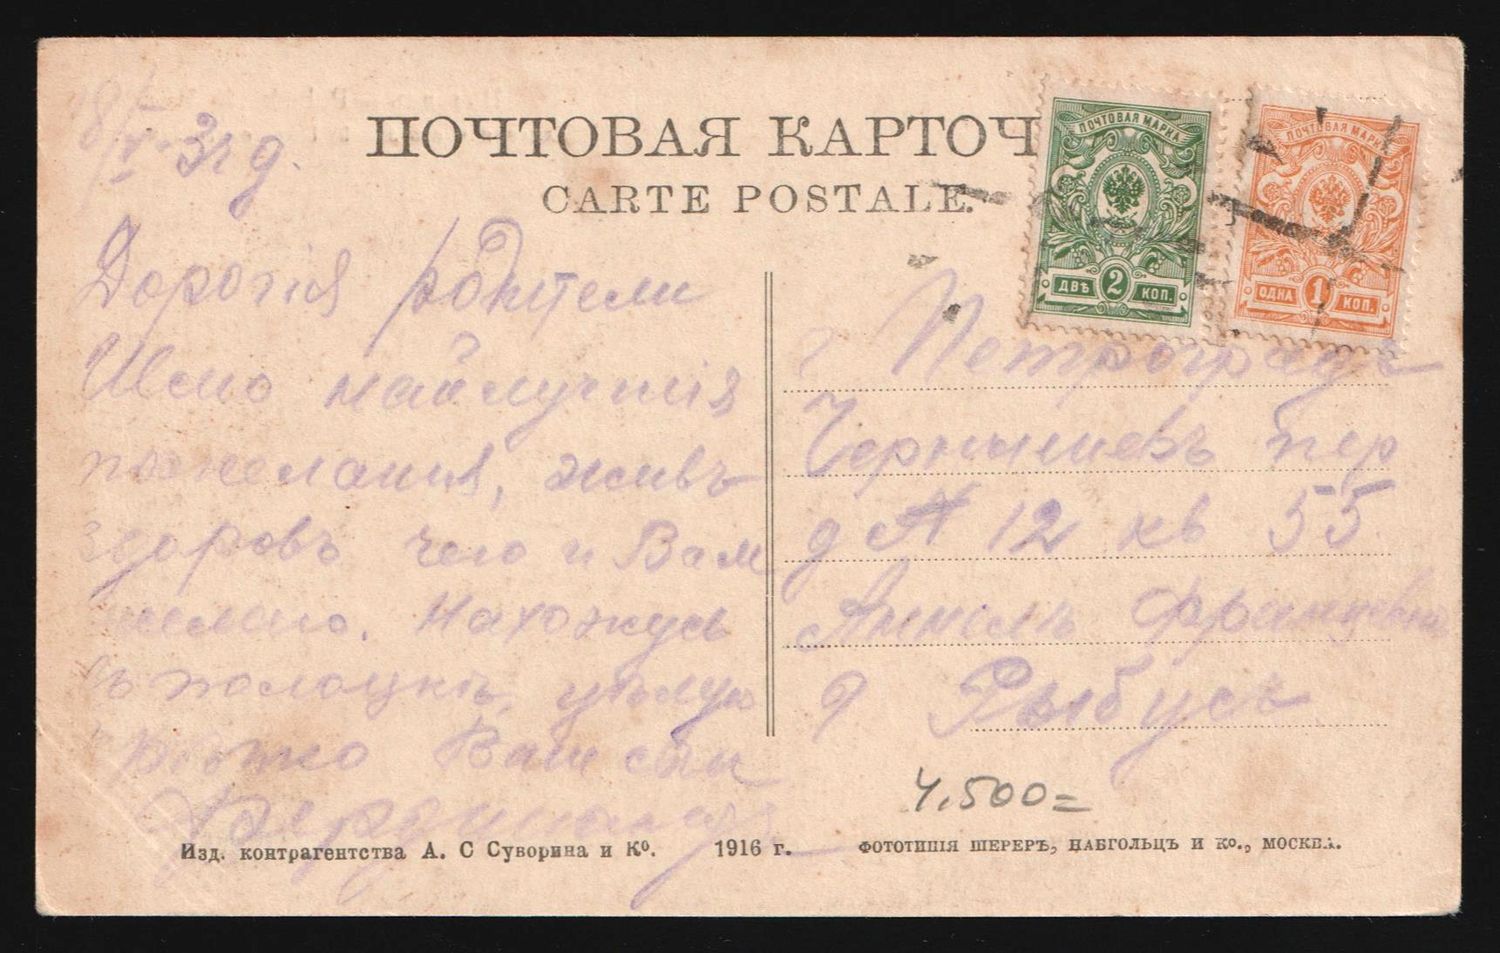 ПОЧТОВАЯ КАРТОЧ
CARTE POSTALE.
ПОЧТОВАЯ МАРКА
ДВѢ 2 КОП.
ПОЧТОВАЯ МАРКА
ОДНА 1 КОП.
Дорогія родители
Шлю найлучшія
пожелания, живъ
здоровъ чего и Вам
желаю. Нахожусь
въ полоцкѣ, цѣлую
крѣпко Ваш сын
г Петроградъ
Чернышевъ пер
д № 12 кв 55
Францевна
Рыбусъ
4.500=
Изд. контрагентства А. С Суворина и Ко. 1916 г.
ФОТОТИПІЯ ШЕРЕРЪ, НАБГОЛЬЦЪ И Ко., МОСКВА.